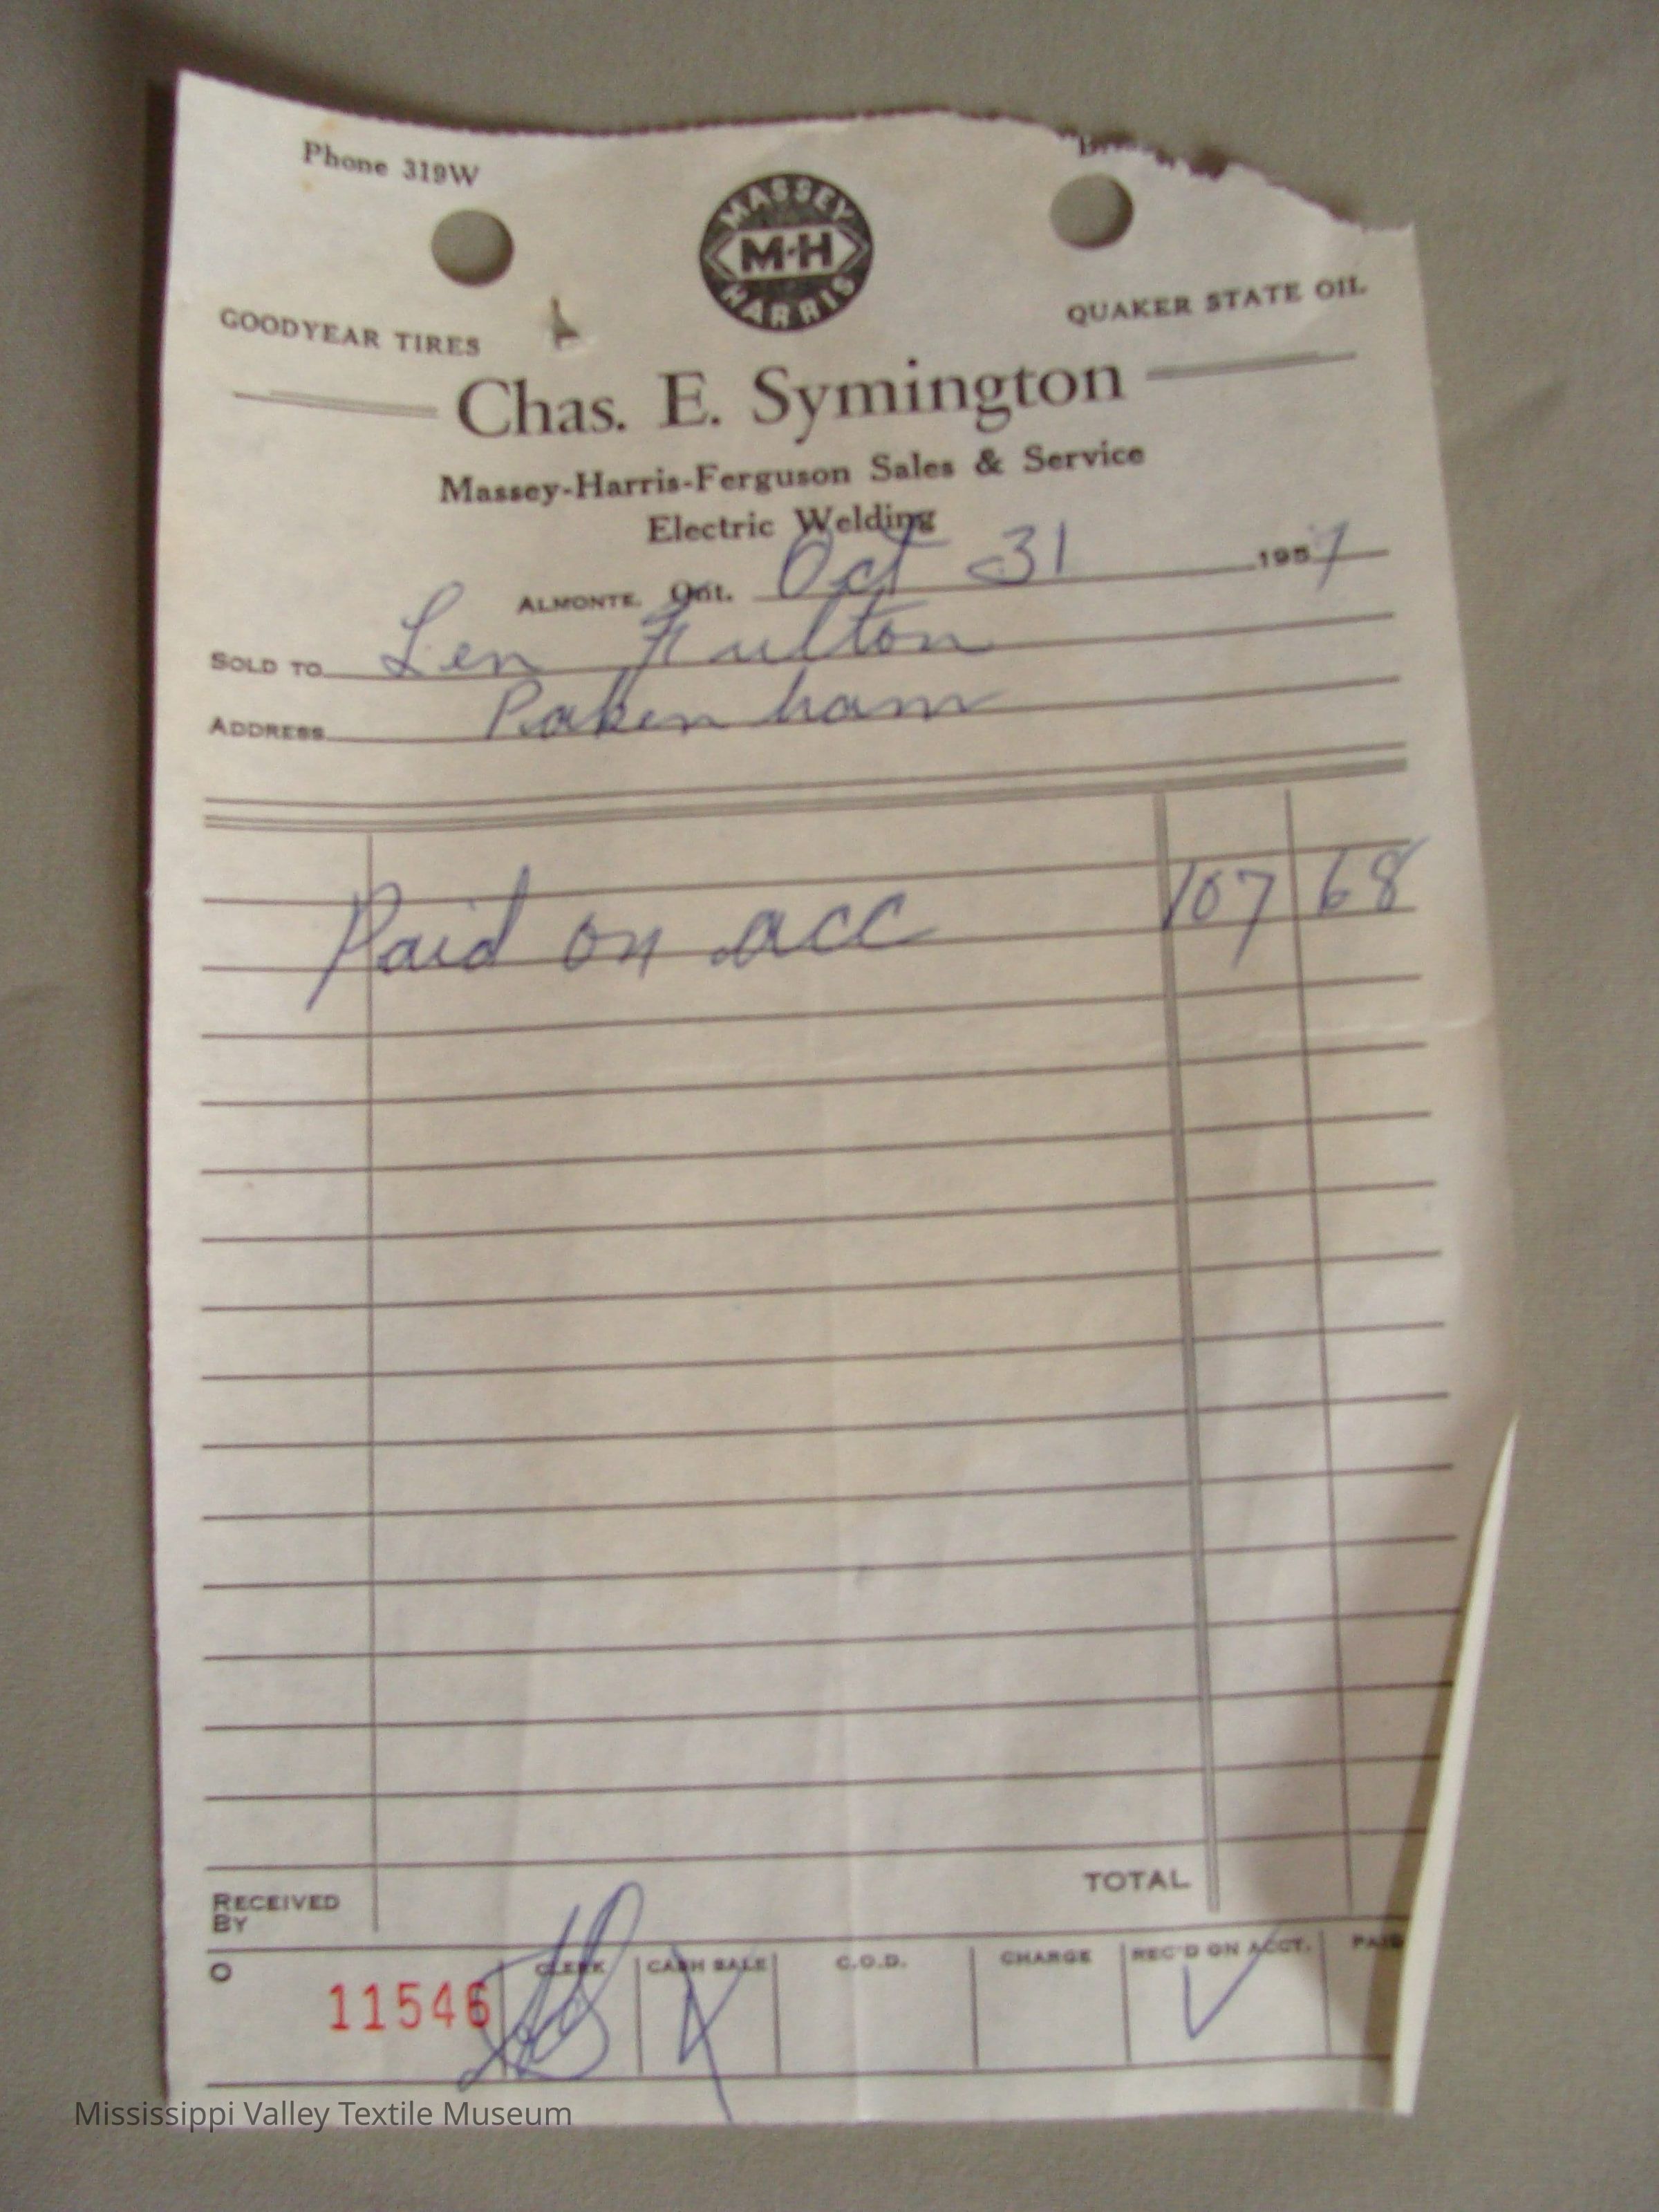 Phone 319W
MASSEY
M-H
HARRIS
GOODYEAR TIRES QUAKER STATE OIL
Chas. E. Symington
Massey-Harris-Ferguson Sales & Service
Electric Welding
ALMONTE, Ont. Oct 31 1957
SOLD TO Len Fulton
ADDRESS Pakenham
Paid on acc 107 68
TOTAL
RECEIVED
BY
O CLERK CASH SALE C.O.D. CHARGE REC'D ON ACCT. PAID
11546
Mississippi Valley Textile Museum